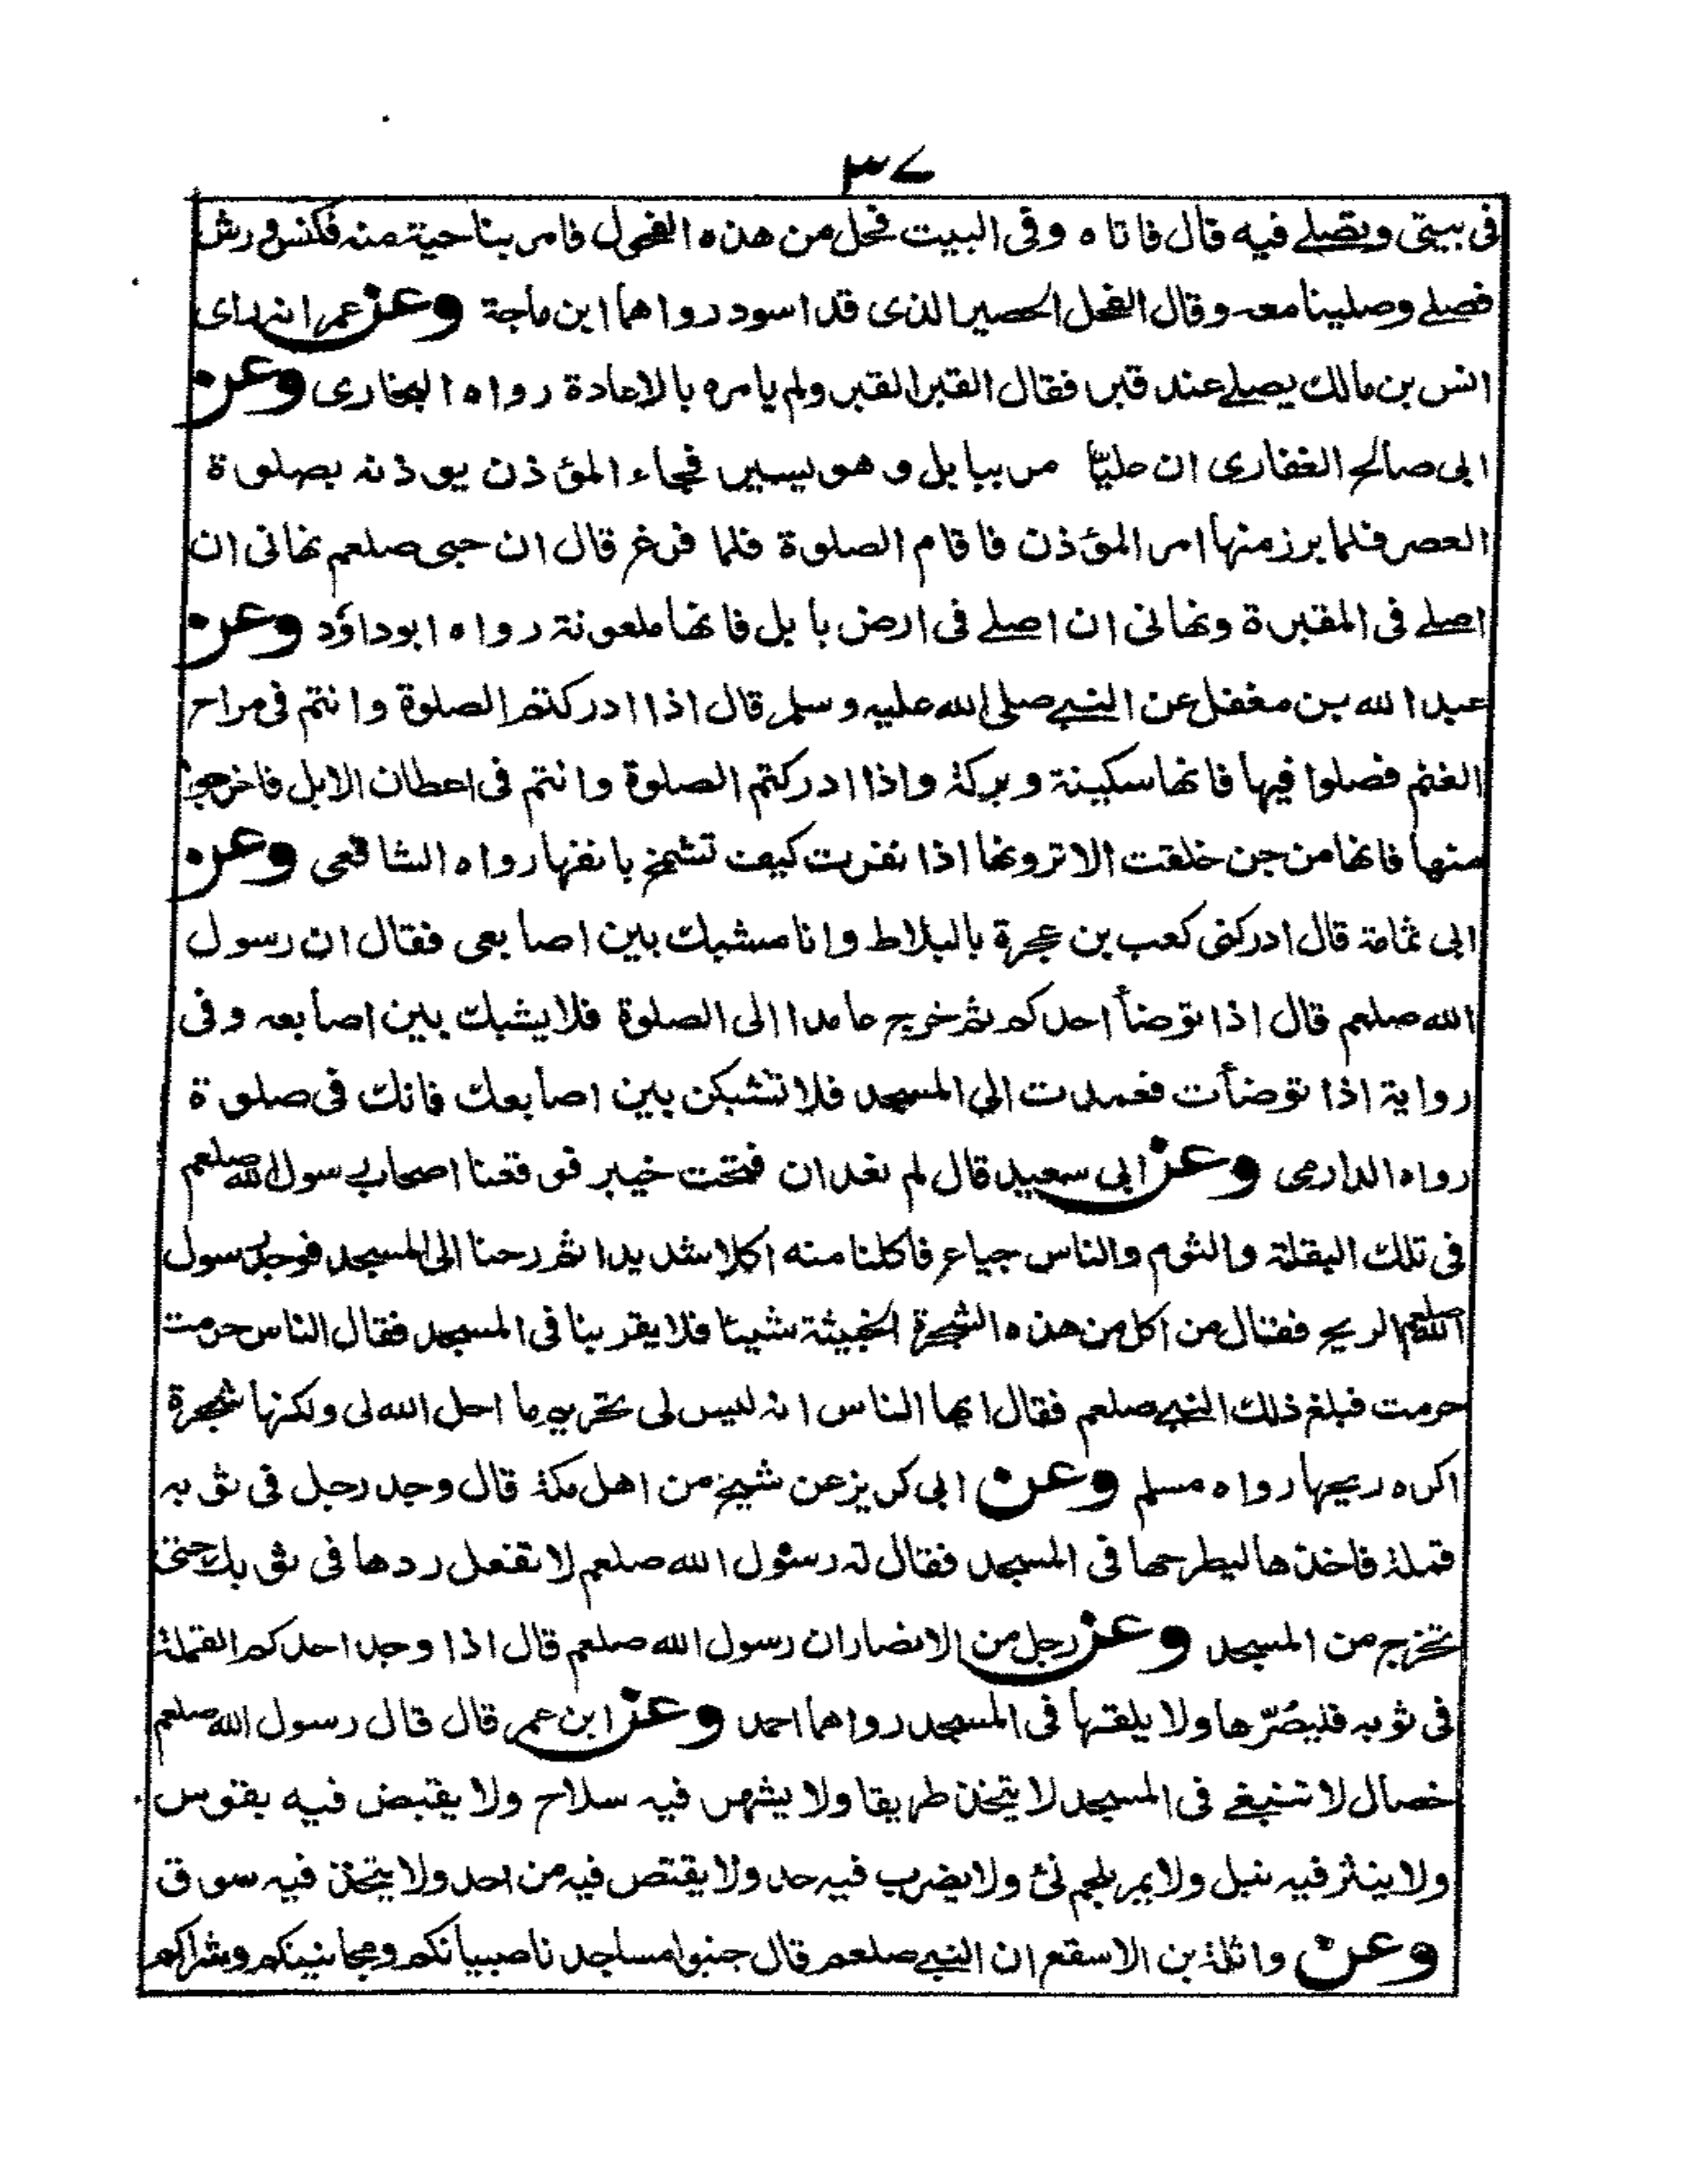 ٣٧
فى بيتى وتصلے فيه قال فاتاه وفى البيت فحل من هذه الفحول فامر بناحية منه فكنس ورش
فصلے وصلينا معه وقال الفحل الحصير الذى قد اسود رواهما ابن ماجة وعن عمر انه راى
انس بن مالك يصلے عند قبر فقال القبر القبر ولم يامره بالاعادة رواه البخارى وعن
ابى صالح الغفارى ان عليّا مر ببابل وهو يسير فجاء المؤذن يوذنه بصلوة
العصر فلما برز منها امر المؤذن فاقام الصلوة فلما فرغ قال ان حبى صلعم نهانى ان
اصلے فى المقبرة ونهانى ان اصلے فى ارض بابل فانها ملعونة رواه ابوداؤد وعن
عبد الله بن مغفل عن النبے صلى الله عليه وسلم قال اذا ادركتم الصلوة وانتم فى مراح
الغنم فصلوا فيها فانها سكينة وبركة واذا ادركتم الصلوة وانتم فى اعطان الابل فاخرجوا
منها فانها من جن خلقت الا ترونها اذا نفرت كيف تشمخ بانفها رواه الشافعى وعن
ابى ثمامة قال ادركنى كعب بن عجرة بالبلاط وانا مشبك بين اصابعى فقال ان رسول
الله صلعم قال اذا توضأ احدكم ثم خرج عامدا الى الصلوة فلا يشبك بين اصابعه وفى
رواية اذا توضأت فعمدت الى المسجد فلا تشبكن بين اصابعك فانك فى صلوة
رواه الدارمى وعن ابى سعيد قال لم نعد ان فتحت خيبر فوقعنا اصحاب رسول الله صلعم
فى تلك البقلة والثوم والناس جياع فاكلنا منه اكلا شديدا ثم رحنا الى المسجد فوجد رسول
الله صلعم الريح فقال من اكل من هذه الشجرة الخبيثة شيئا فلا يقربنا فى المسجد فقال الناس حرمت
حرمت فبلغ ذلك النبے صلعم فقال ايها الناس انه ليس لى تحريم ما احل الله لى ولكنها شجرة
اكره ريحها رواه مسلم وعن ابى كريز عن شيخ من اهل مكة قال وجد رجل فى ثوبه
قملة فاخذها ليطرحها فى المسجد فقال له رسول الله صلعم لا تفعل ردها فى ثوبك حتى
تخرج من المسجد وعن رجل من الانصار ان رسول الله صلعم قال اذا وجد احدكم القملة
فى ثوبه فليصُرّها ولا يلقها فى المسجد رواهما احمد وعن ابن عمر قال قال رسول الله صلعم
خصال لا تنبغے فى المسجد لا يتخذ طريقا ولا يشهر فيه سلاح ولا يقبض فيه بقوس
ولا ينثر فيه نبل ولا يمر بلحم نئ ولا يضرب فيه حد ولا يقتص فيه من احد ولا يتخذ فيه سوق
وعن واثلة بن الاسقع ان النبے صلعم قال جنبوا مساجدنا صبيانكم ومجانينكم وشراكم